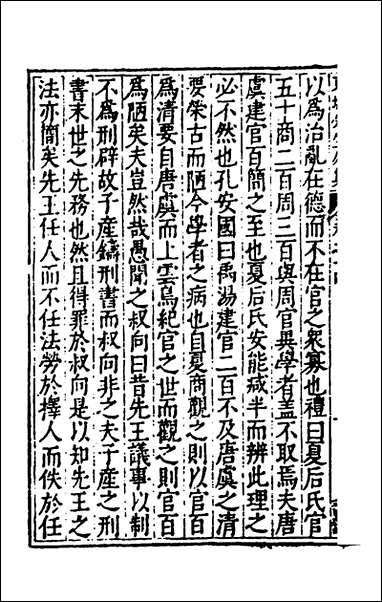 以爲治亂在德而不在官之衆寡也禮曰夏后氏官
五十商二百周三百與周官異學者蓋不取焉夫唐
虞建官百簡之至也夏后氏安能减半而辨此理之
必不然也孔安國曰禹湯建官二百不及唐虞之清
要榮古而陋今學者之病也自夏商觀之則以官百
爲清要自唐虞而上雲鳥紀官之世而觀之則官百
爲陋矣夫豈然哉愚聞之叔向曰昔先王議事以制
不爲刑辟故子産鑄刑書而叔向非之夫子産之刑
書末世之先務也然且得罪於叔向是以知先王之
法亦簡矣先王任人而不任法勞於擇人而佚於任